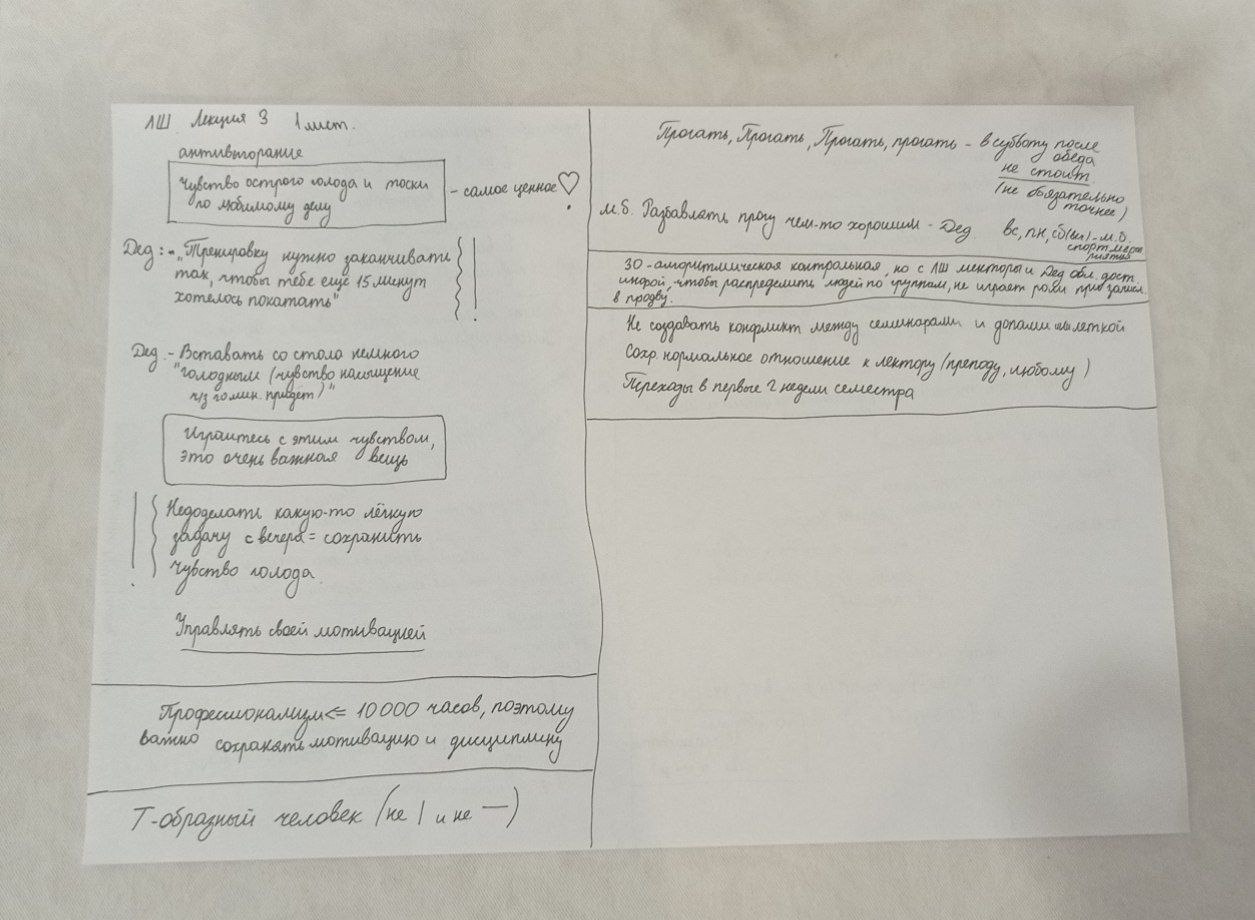 ЛШ Лекция 3 1 лист.
антивыгорание
Чувство острого голода и тоски
по любимому делу
- самое ценное♡!
Дед: - "Тренировку нужно заканчивать
так, чтобы тебе ещё 15 минут
хотелось покатать"
Дед - Вставать со стола немного
"голодным (чувство насыщение
ч/з 20 мин. придёт)"
Играйтесь с этим чувством,
это очень важная вещь
Недоделать какую-то лёгкую
задачу с вечера = сохранить
чувство голода.
Управлять своей мотивацией
Профессионализм <= 10 000 часов, поэтому
важно сохранять мотивацию и дисциплину
Т-образный человек (не | и не —)
Прогать, Прогать, Прогать, прогать - в субботу после
обеда
не стоит
(не обязательно
точнее)
м.б. Разбавлять прогу чем-то хорошим - Дед вс, пн, сб(веч) - м.б.
спорт.меро
приятия
30 - алгоритмическая контрольная, но с ЛШ лекторы и Дед обл. дост.
инфой, чтобы распределить людей по группам, не играет роли при запис.
в продву.
Не создавать конфликт между семинарами и допами или леткой
Сохр. нормальное отношение к лектору (преподу, любому)
Переходы в первые 2 недели семестра